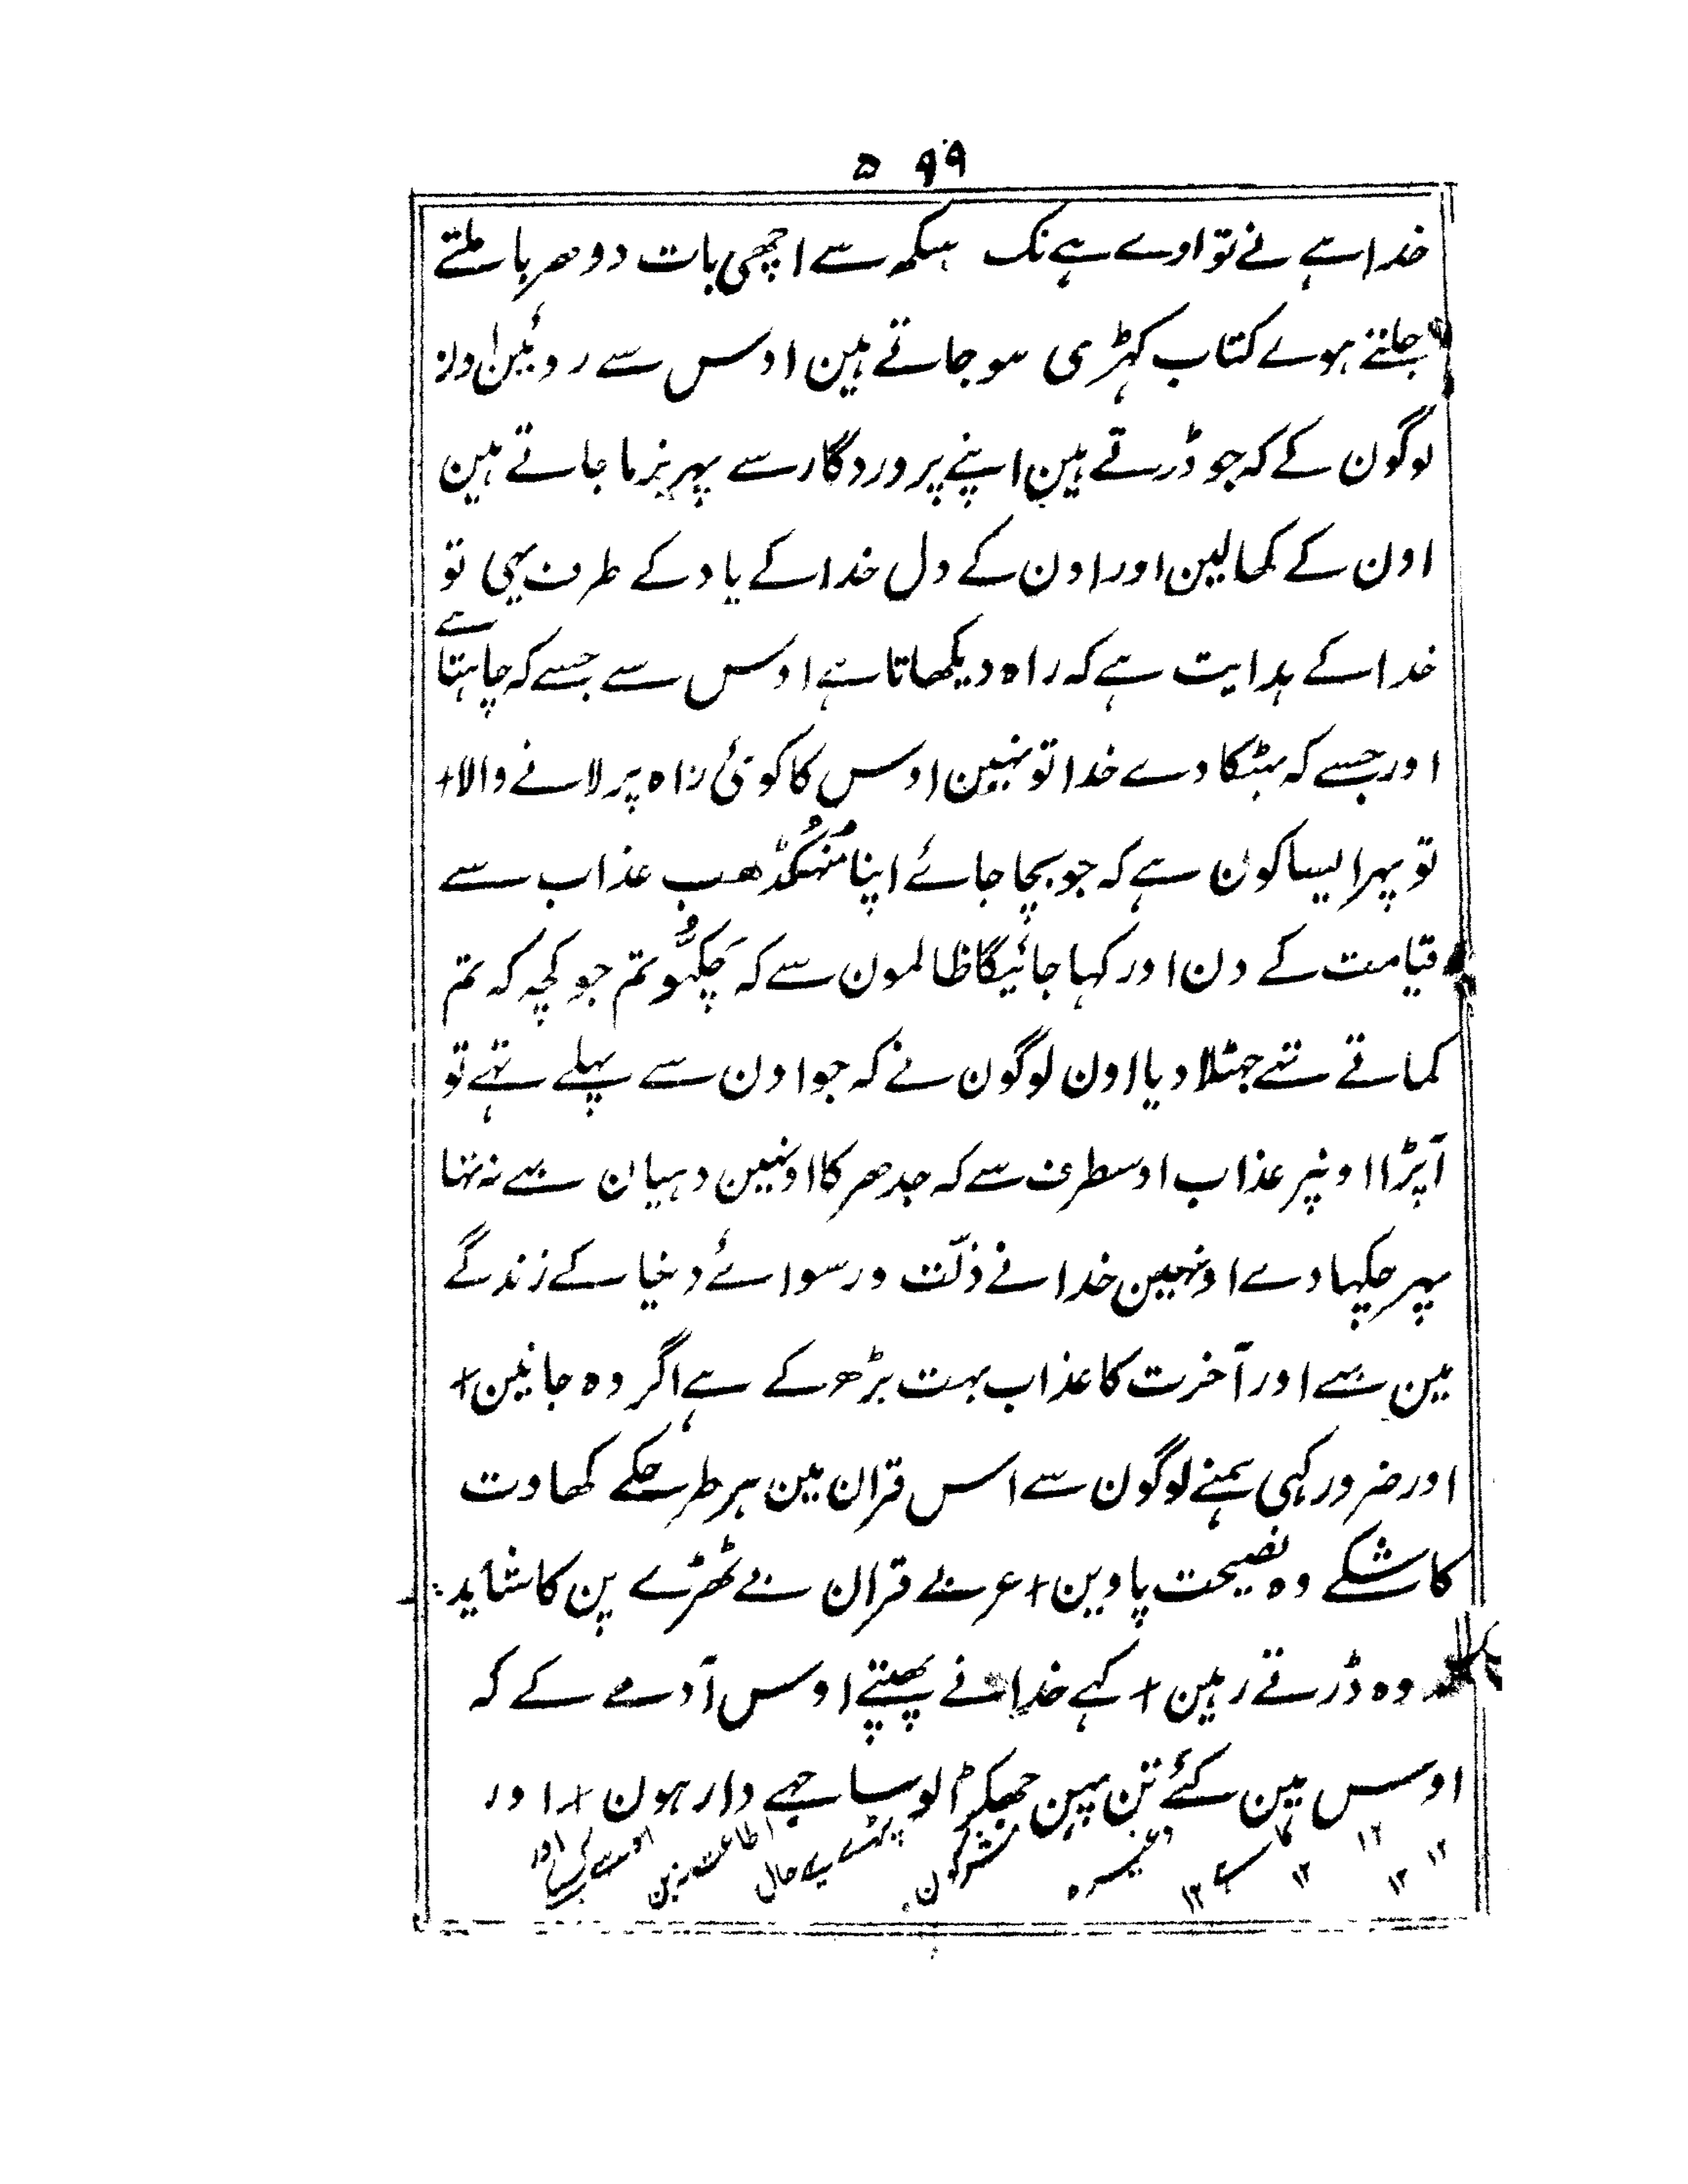 ۵۹۹
خدا ہے نے تو اوے ہے نک ہیکہ سے اچھی بات دوھر با ملتے
جلتے ہوے کتاب کہڑی ہو جاتے ہین اوس سے روئین اون
لوگون کے کہ جو ڈرتے ہین اپنے پروردگار سے پہر نرما جاتے ہین
اون کے کھالین اور اون کے دل خدا کے یاد کے طرف یہی تو
خدا کے ہدایت ہے کہ راہ دیکھاتا ہے اوس سے جسے کہ چاہتا ہے
اور جسے کہ بہٹکا دے خدا تو نہین اوس کا کوئی راہ پر لانے والا+
تو پہر ایسا کون ہے کہ جو بچا جائے اپنا منہ کڈھب عذاب سے
قیامت کے دن اور کہا جائیگا ظالمون سے کہ چکہو تم جو کچہ کہ تم
کماتے تہے جہٹلا دیا اون لوگون نے کہ جو اون سے پہلے تہے تو
آپڑا اونپر عذاب اوسطرف سے کہ جدھر کا اونہین دہیان بہے نہ تہا
پہر چکہا دے اونہین خدا نے ذلّت و رسوائے دنیا کے زندگے
مین بہے اور آخرت کا عذاب بہت بڑھ کے ہے اگر وہ جانین+
اور ضرور کہی ہمنے لوگون سے اس قران مین ہر طرحکے کھاوت
کاشکے وہ نصیحت پاوین+ عربے قران بے ٹھڑے پن کا شاید
وہ ڈرتے رہین + کہے خدا نے پھبتے اوس آدمے کے کہ
اوس مین کئے تن مین جھگڑالو ساجھے دار ہون + اور
۱۲ ۱۲ ۱۲ ۱۲ ۱۲ وغیرہ مشرکون